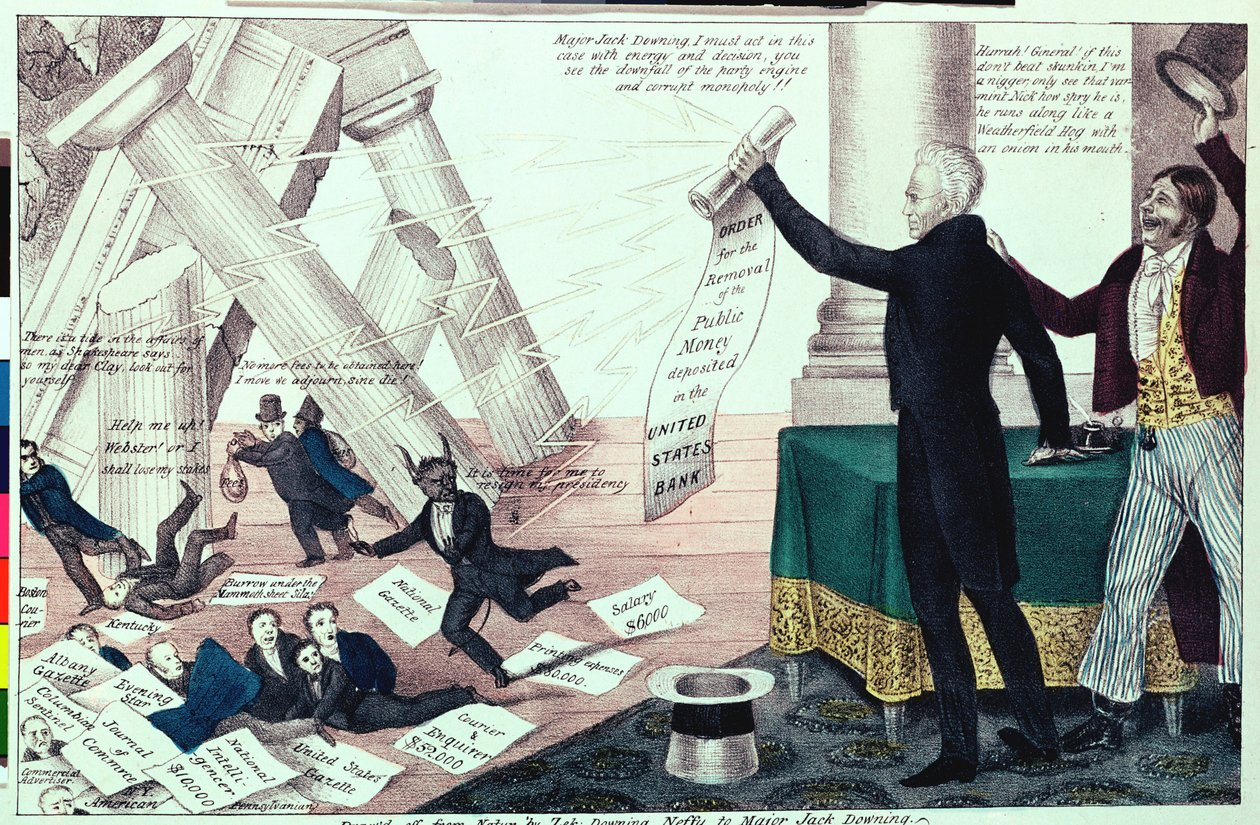 Major Jack Downing, I must act in this
case with energy and decision, you
see the downfall of the party engine
and corrupt monopoly!!
Hurrah! Gineral! if this
don't beat skunkin, I'm
a nigger, only see that var-
mint Nick how spry he is,
he runs along like a
Weatherfield Hog with
an onion in his mouth.
ORDER
for the
Removal
of the
Public
Money
deposited
in the
UNITED
STATES
BANK
There is a tide in the affairs of
men, as Shakespeare says,
so my dear Clay, look out for
yourself.
No more fees to be obtained here,
I move we adjourn, sine die!
Help me up!
Webster! or I
shall lose my stakes
Fees
It is time for me to
resign my presidency
Boston
Cou-
rier
Burrow under the
Mammoth sheet Sila
Kentucky
National
Gazette
Salary
$6000
Printing expenses
$80.000.
Albany
Gazette
Evening
Star
Columbian
Sentinel
Journal
of
Commrce
National
Intelli-
gencer
$10.000
United States
Gazette
Courier
&
Enquirer
$52.000
Commercial
Advertiser
N.Y.
American
Pennsylvanian
Draw'd off from Natur' by Zek. Downing, Neffu to Major Jack Downing.